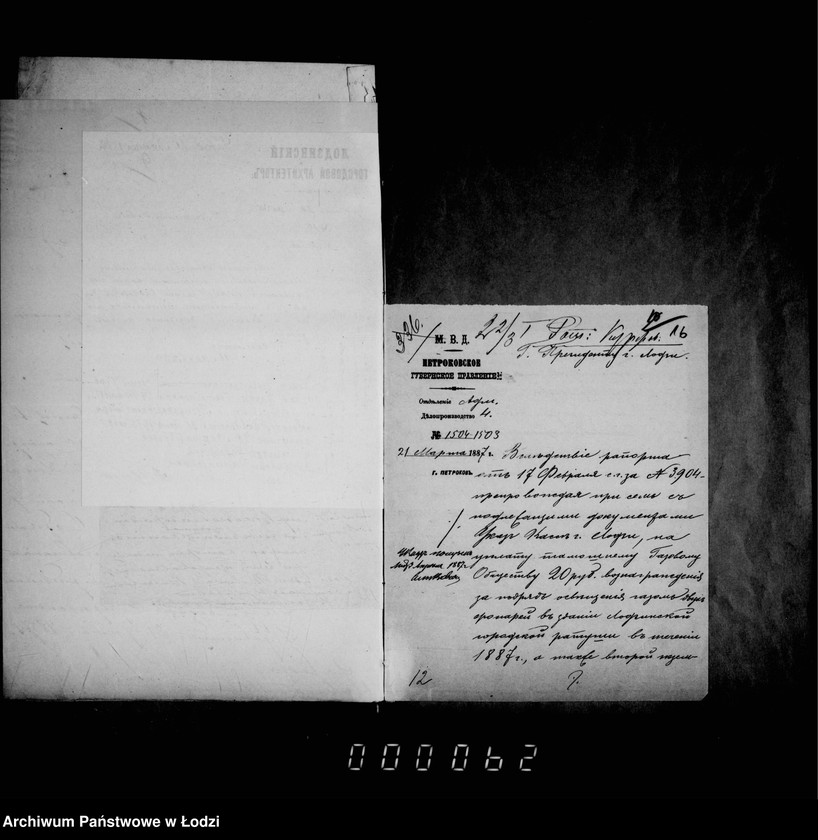 ЛОДЗИНСКІЙ
ГОРОДОВОЙ АРХИТЕКТОРЪ
336.
22/3
М. В. Д.
Г. Президенту г. Лодзи.
ПЕТРОКОВСКОЕ
ГУБЕРНСКОЕ ПРАВЛЕНІЕ
Отдѣленіе Адм.
Дѣлопроизводство 4.
№ 1504-1503
21 Марта 1887 г.
г. ПЕТРОКОВЪ
Вслѣдствіе рапорта
отъ 17 Февраля с.г. за № 3904
препровождая при семъ съ
подлежащими документами
Указъ Кассѣ г. Лодзи, на
уплату тамошнему Газовому
Обществу 20 руб. вознагражденія
за подрядъ освѣщенія газомъ двухъ
фонарей въ зданіи Лодзинской
городской ратуши въ теченіи
1887 г., а также второй экзем-
12
000062
Archiwum Państwowe w Łodzi